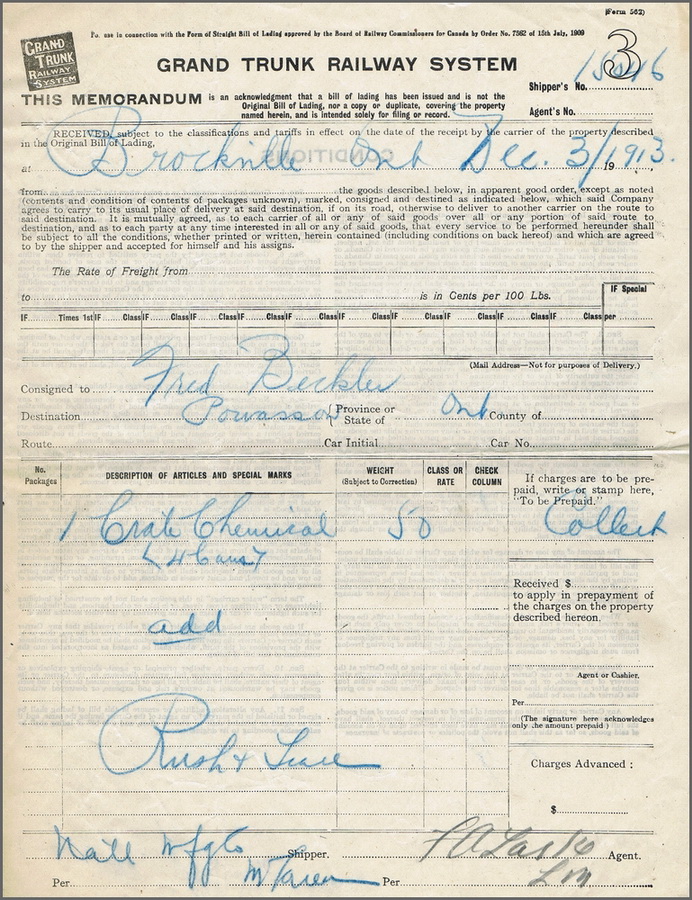 (Form 562)
GRAND
TRUNK
RAILWAY
SYSTEM
To. use in connection with the Form of Straight Bill of Lading approved by the Board of Railway Commissioners for Canada by Order No. 7562 of 15th July, 1909
3
GRAND TRUNK RAILWAY SYSTEM
Shipper's No.
THIS MEMORANDUM is an acknowledgment that a bill of lading has been issued and is not the
Original Bill of Lading, nor a copy or duplicate, covering the property
named herein, and is intended solely for filing or record.
Agent's No.
RECEIVED, subject to the classifications and tariffs in effect on the date of the receipt by the carrier of the property described
in the Original Bill of Lading,
at Brockville Ont Dec. 3/1913.
19
from the goods described below, in apparent good order, except as noted
(contents and condition of contents of packages unknown), marked, consigned and destined as indicated below, which said Company
agrees to carry to its usual place of delivery at said destination, if on its road, otherwise to deliver to another carrier on the route to
said destination. It is mutually agreed, as to each carrier of all or any of said goods over all or any portion of said route to
destination, and as to each party at any time interested in all or any of said goods, that every service to be performed hereunder shall
be subject to all the conditions, whether printed or written, herein contained (including conditions on back hereof) and which are agreed
to by the shipper and accepted for himself and his assigns.
The Rate of Freight from
to is in Cents per 100 Lbs.
IF Special
IF Times 1st IF Class IF Class IF Class IF Class IF Class IF Class IF Class IF Class IF Class per
(Mail Address—Not for purposes of Delivery.)
Consigned to Fred Beckler
Destination Powasson Province or State of Ont County of
Route Car Initial Car No.
No. Packages DESCRIPTION OF ARTICLES AND SPECIAL MARKS WEIGHT (Subject to Correction) CLASS OR RATE CHECK COLUMN
If charges are to be prepaid, write or stamp here,
"To be Prepaid."
1 Crate Chemical 50
Collect
4 Cans
add
Received $
to apply in prepayment of
the charges on the property
described hereon.
Agent or Cashier.
Per
(The signature here acknowledges
only the amount prepaid)
Rush &
Charges Advanced :
$
Natl Mfg Co Shipper. Agent.
Per Per